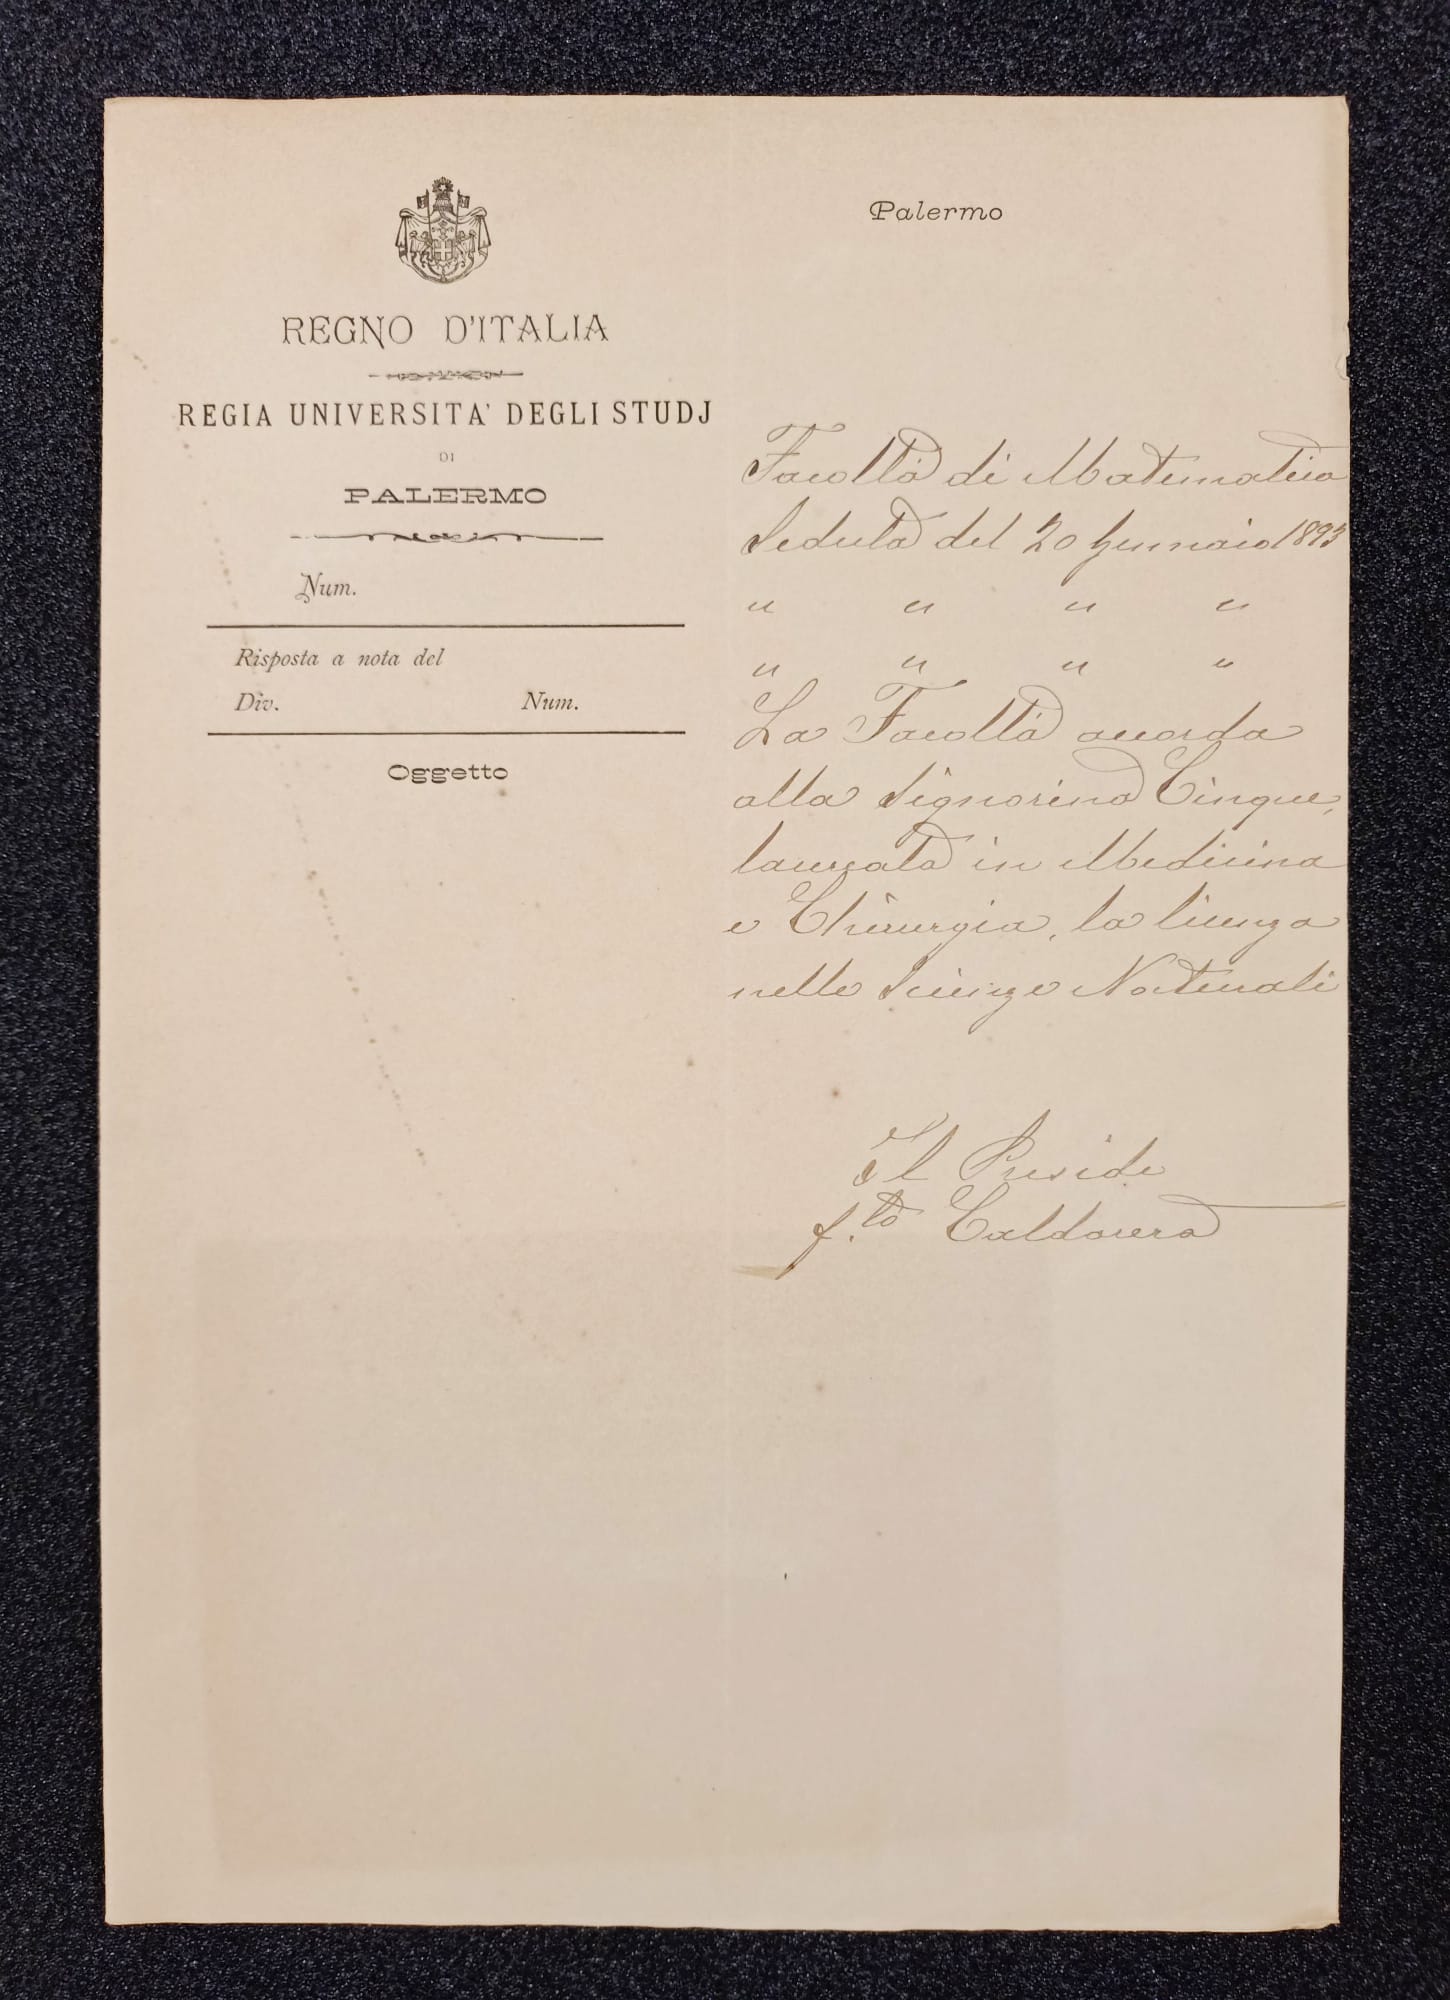 REGNO D'ITALIA
REGIA UNIVERSITA' DEGLI STUDJ
DI
PALERMO
Num.
Risposta a nota del
Div. Num.
Oggetto
Palermo
Facoltà di Matematica
Seduta del 20 Gennaio 1893
" " " "
" " " "
La Facoltà accorda
alla Signorina Cinque,
laureata in Medicina
e Chirurgia, la licenza
nelle Scienze Naturali
Il Preside
f.to Caldarera